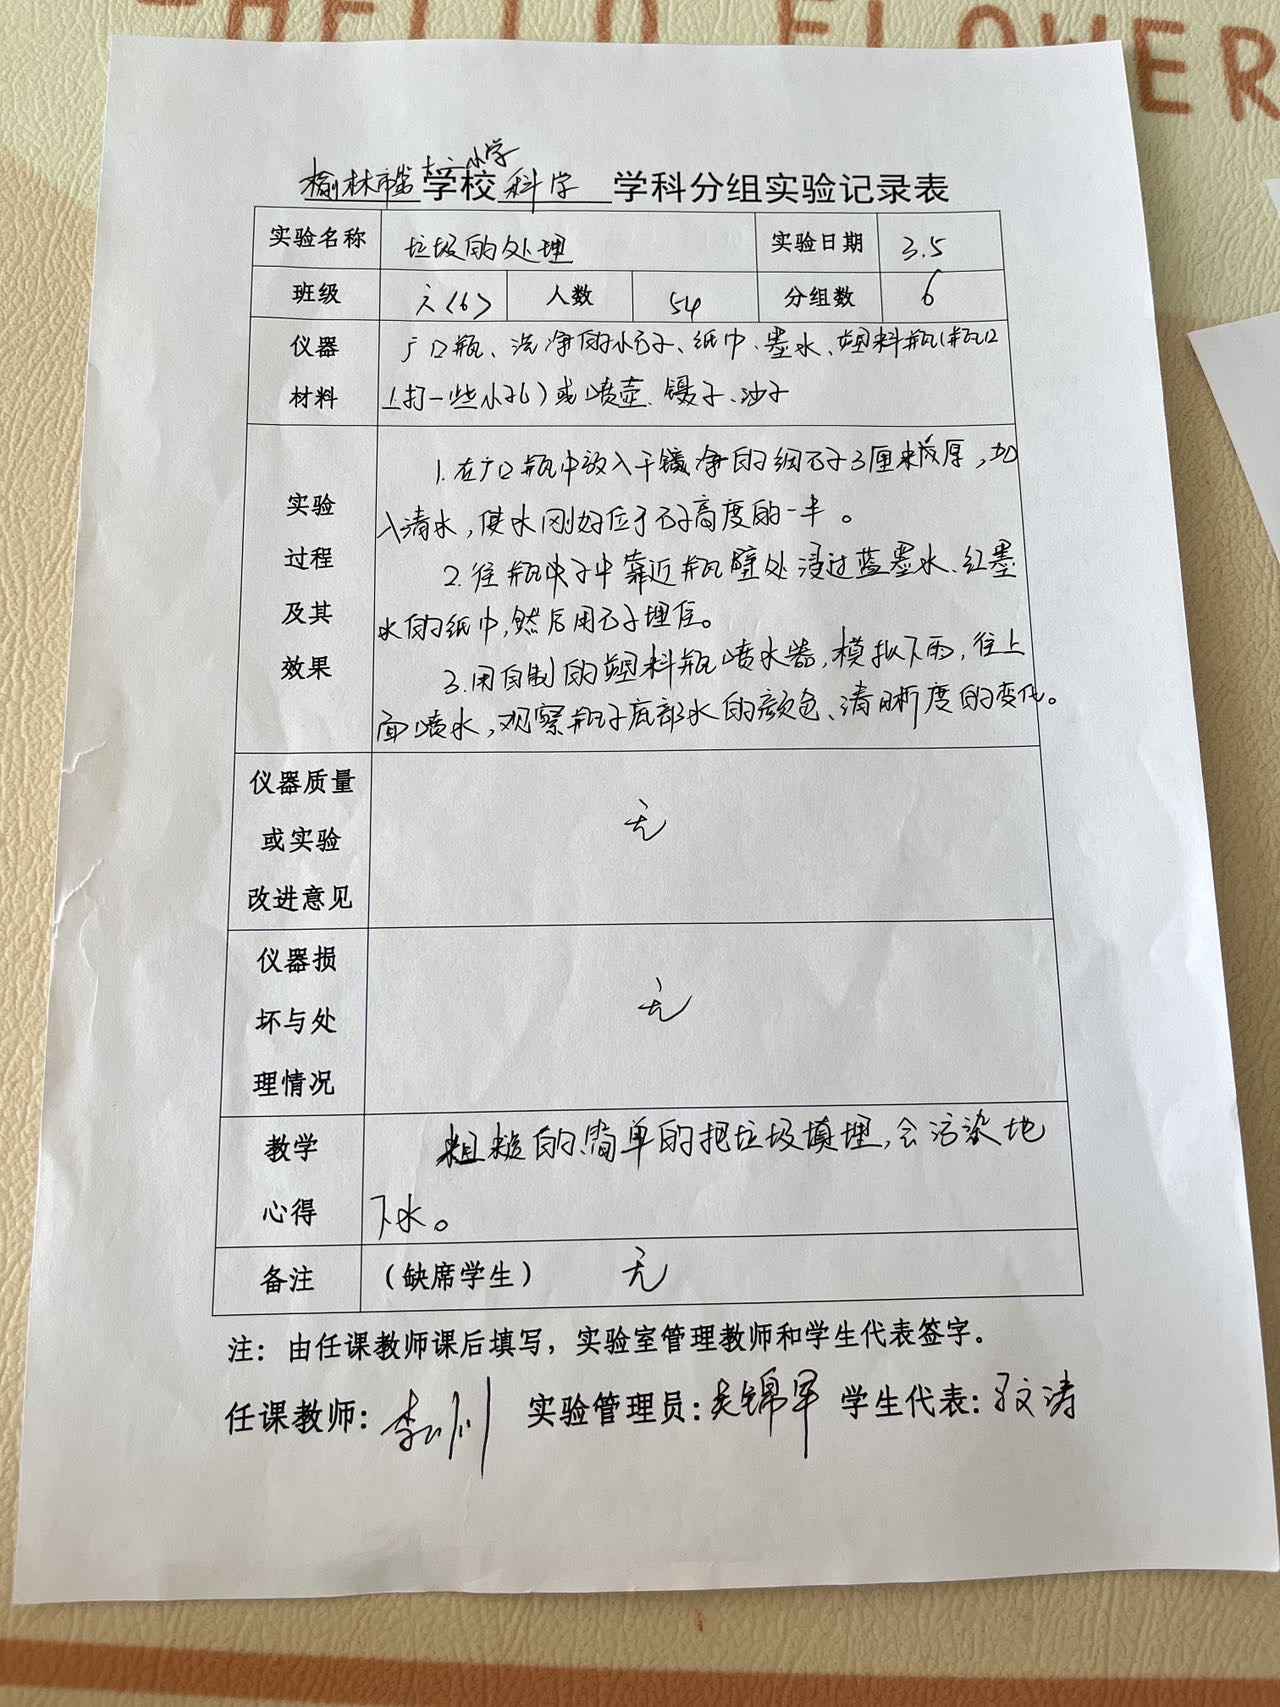 HELLO FLOWER
榆林市第十二小学
学校 科学 学科分组实验记录表
实验名称 垃圾的处理 实验日期 3.5
班级 六(6) 人数 54 分组数 6
仪器 广口瓶、洗净的小石子、纸巾、墨水、塑料瓶(瓶口
材料 上打一些小孔)或喷壶、镊子、沙子
1.在广口瓶中放入干净的细石子3厘米厚,加
实验 入清水,使水刚好位于石子高度的一半。
过程 2.往瓶中靠近瓶壁处浸过蓝墨水、红墨
及其 水的纸巾,然后用石子埋住。
效果 3.用自制的塑料瓶喷水器,模拟下雨,往上
面喷水,观察瓶子底部水的颜色、清晰度的变化。
仪器质量
或实验 无
改进意见
仪器损
坏与处 无
理情况
教学 粗糙的简单的把垃圾填埋,会污染地
心得 下水。
备注 (缺席学生) 无
注:由任课教师课后填写,实验室管理教师和学生代表签字。
任课教师: 实验管理员: 学生代表: